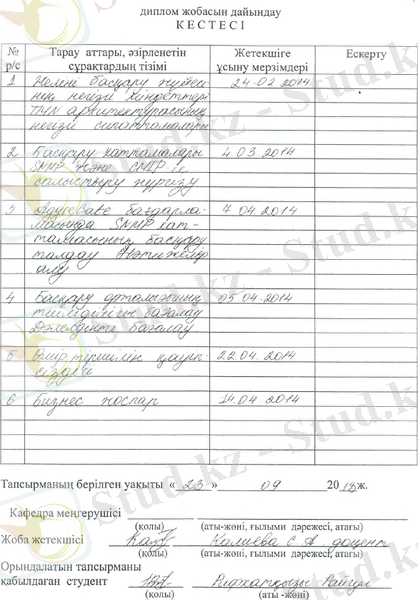 диплом жобасын дайындау
К Е С Т Е С І
№ р/с
Тарау аттары, әзірленетін сұрақтардың тізімі
Жетекшіге ұсыну мерзімдері
Ескерту
1 Желіні басқару жүйесі 24.02 2014
нің негізгі міндеттері
TMN архитектурасының
негізгі сипаттамалары
2 Басқару хаттамалары 4.03.2014
SNMP және CMIP
салыстыру жүргізу
3 AggreGate бағдарла- 7.04.2014
масында SNMP хат-
тамасының басқару
талдау нәтижелер
алу
4 Басқару орталығының 05.04.2014
тиімділігін бағалау
бағалау
5 Өмір тіршілік қауіп- 22.04.2014
сіздігі
6 Бизнес жоспар 14.04.2014
Тапсырманың берілген уақыты « 23 » 09 2013ж.
Кафедра меңгерушісі
(қолы) (аты-жөні, ғылыми дәрежесі, атағы)
Жоба жетекшісі С А доцент
(қолы) (аты-жөні, ғылыми дәрежесі, атағы)
Орындалатын тапсырманы
қабылдаған студент
(қолы) (аты -жөні)
Stud.kz - Stud.kz